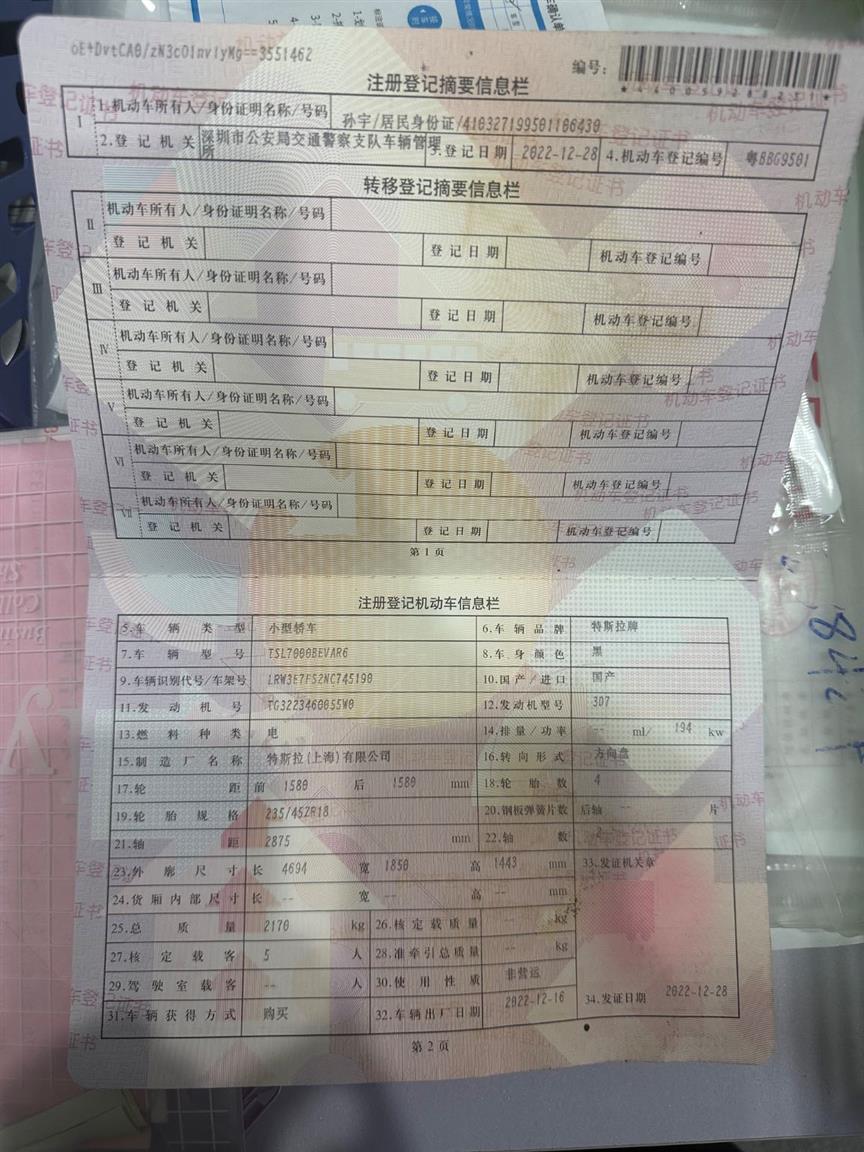 oE+DvtCA0/zN3cO1nvlyMg==3551462
编号:
注册登记摘要信息栏
I 1.机动车所有人/身份证明名称/号码 孙宇/居民身份证/410327199501106430
2.登记机关 深圳市公安局交通警察支队车辆管理所 3.登记日期 2022-12-28 4.机动车登记编号 粤BBG9501
转移登记摘要信息栏
II 机动车所有人/身份证明名称/号码
登记机关 登记日期 机动车登记编号
III 机动车所有人/身份证明名称/号码
登记机关 登记日期 机动车登记编号
IV 机动车所有人/身份证明名称/号码
登记机关 登记日期 机动车登记编号
V 机动车所有人/身份证明名称/号码
登记机关 登记日期 机动车登记编号
VI 机动车所有人/身份证明名称/号码
登记机关 登记日期 机动车登记编号
VII 机动车所有人/身份证明名称/号码
登记机关 登记日期 机动车登记编号
第1页
注册登记机动车信息栏
5.车辆类型 小型轿车 6.车辆品牌 特斯拉牌
7.车辆型号 TSL7000BEVAR6 8.车身颜色 黑
9.车辆识别代号/车架号 LRW3E7FS2NC745190 10.国产/进口 国产
11.发动机号 TG3223460055W0 12.发动机型号 3D7
13.燃料种类 电 14.排量/功率 -- ml/ 194 kw
15.制造厂名称 特斯拉(上海)有限公司 16.转向形式 方向盘
17.轮距 前 1580 后 1580 mm 18.轮胎数 4
19.轮胎规格 235/45ZR18 20.钢板弹簧片数 后轴 -- 片
21.轴距 2875 mm 22.轴数 2
23.外廓尺寸 长 4694 宽 1850 高 1443 mm 33.发证机关章
24.货厢内部尺寸 长 -- 宽 -- 高 -- mm
25.总质量 2170 kg 26.核定载质量 -- kg
27.核定载客 5 人 28.准牵引总质量 -- kg
29.驾驶室载客 -- 人 30.使用性质 非营运
31.车辆获得方式 购买 32.车辆出厂日期 2022-12-16 34.发证日期 2022-12-28
第2页